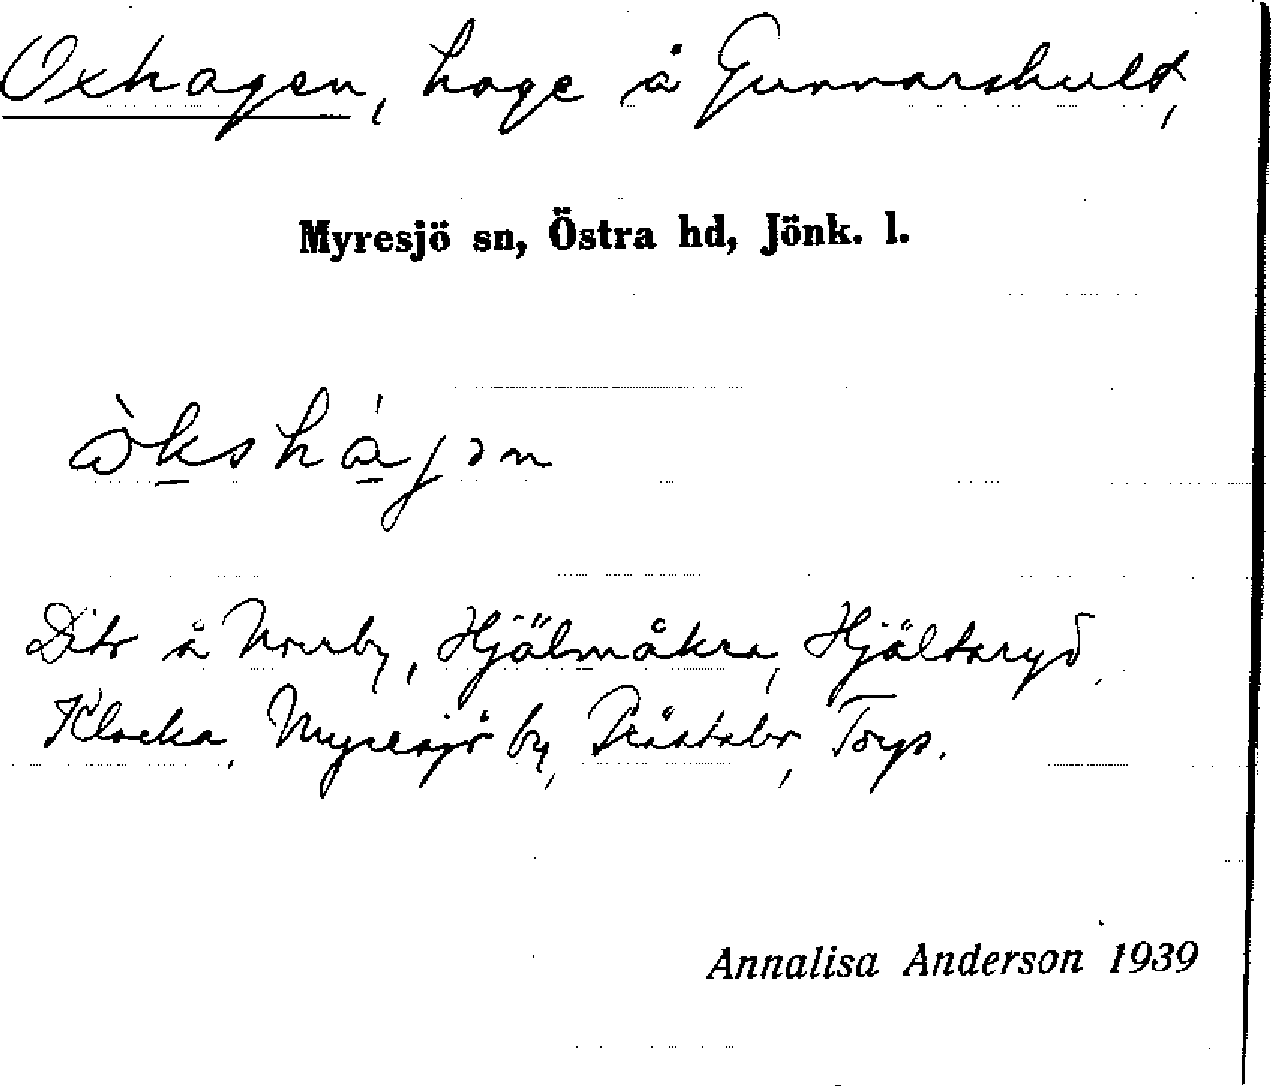 Oxhagen, hage å Gunnarshult,
Myresjö sn, Östra hd, Jönk. l.
Dito å Norrby, Hjälmåkra, Hjältaryd,
Klocka, Myresjö by, Torps.
Annalisa Anderson 1939